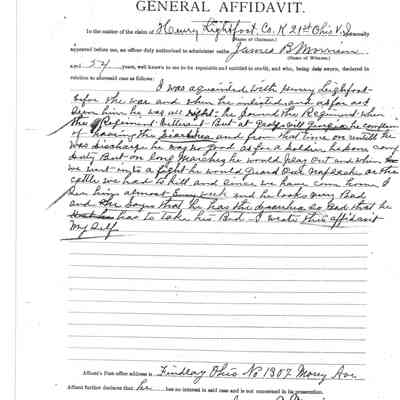 GENERAL AFFIDAVIT.
In the matter of the claim of Henry Lightfoot, Co. K 21st Ohio V. I.
(Name of Claimant.)
personally
appeared before me, an officer duly authorized to administer oaths James B Morrison
(Name of Witness.)
54 years, well known to me to be reputable and entitled to credit, and who, being duly sworn, declared in
relation to aforesaid case as follows:
I was aquainted with Henry Lightfoot
before the war and when he enlisted and as far as I
seen him he was all right he joined the Regiment when
the Regiment But at he
of having the Diarrhea and from that time on untill he
was discharge he was no good as for a soldier he done camp
duty But on long Marches he would play out and when
we went into a fight he would Guard Our Napsacks or the
cattle we had to kill and since we have come home I
see him almost Every week and he looks very Bad
and he Says that he has the diarrhea so Bad that he
has to take his Bed I wrote this affidavit
My Self
Affiant's Post-office address is Findlay Ohio No 1907 Morey Ave
Affiant further declares that he has no interest in said case and is not concerned in its prosecution.